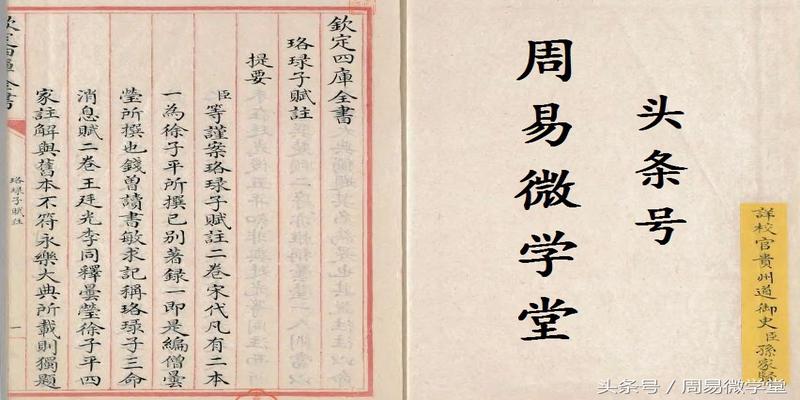 詳校官貴州道御史臣孫家賢
头条号
周易微学堂
欽定四庫全書
珞琭子賦註
提要
臣等謹案珞琭子賦註二卷宋代凡有二本
一為徐子平所撰已別著録一即是編僧曇
瑩所撰也錢曾讀書敏求記稱珞琭子三命
消息賦二卷王廷光李同釋曇瑩徐子平四
家註解與舊本不符永樂大典所載則獨題
欽定四庫全書
珞琭子賦註
一
头条号 / 周易微学堂